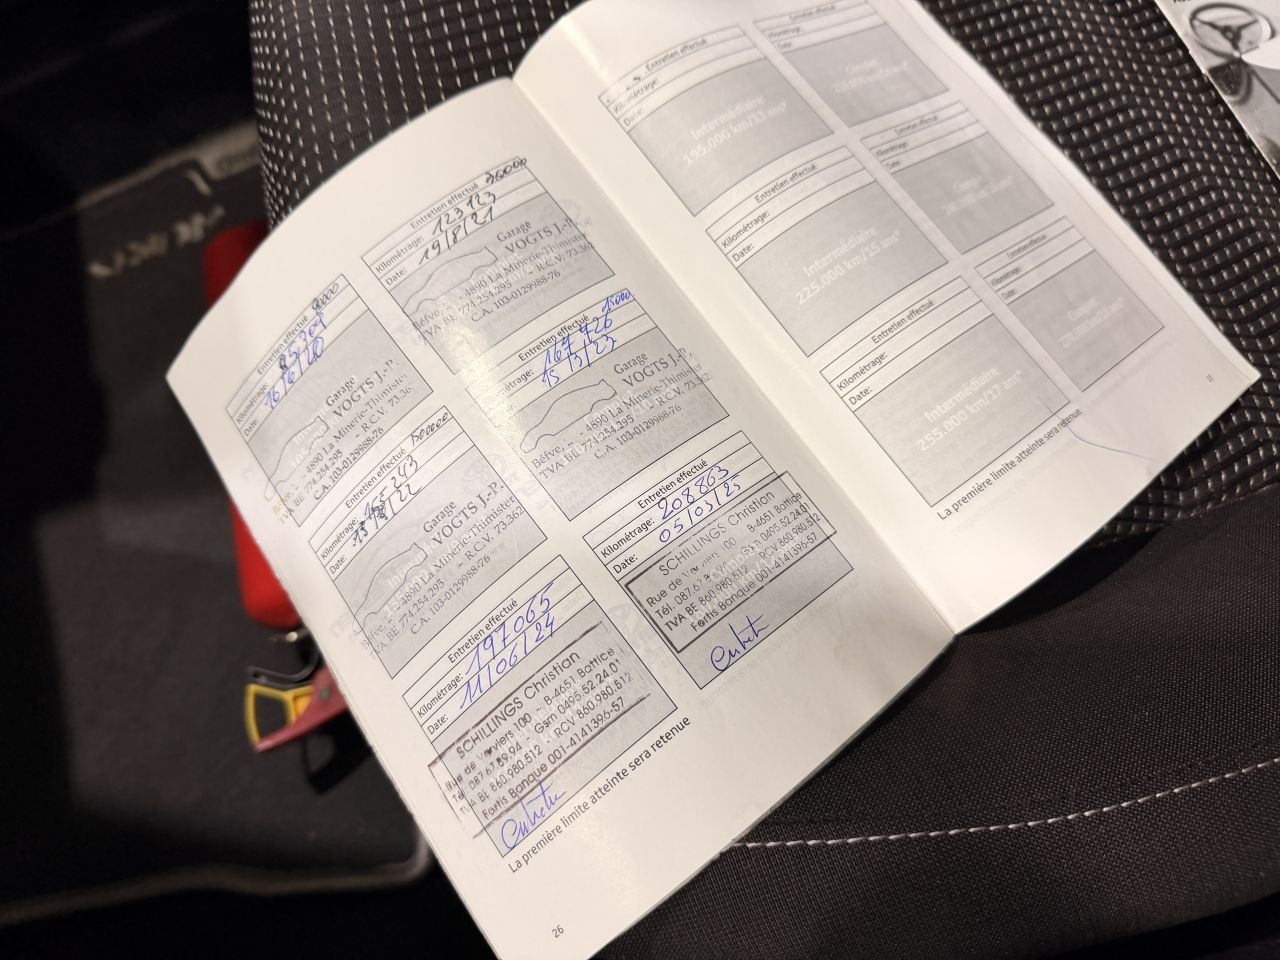 Entretien effectué 90000
Kilométrage:
Date: 16/16/20
Garage
VOGTS J.-P.
4890 La Minerie-Thimister
TVA BE 774.254.295 - R.C.V. 73.36
C.A. 103-0129988-76
Entretien effectué
Kilométrage: 123123
Date: 19/8/21
Garage
VOGTS J.-P.
Béfve, - 4890 La Minerie-Thimister
TVA BE 774.254.295 - R.C.V. 73.362
C.A. 103-0129988-76
Entretien effectué
Kilométrage:
Date:
Garage
VOGTS J.-P.
Béfve, - 4890 La Minerie-Thimister
TVA BE 774.254.295 - R.C.V. 73.362
C.A. 103-0129988-76
Entretien effectué 15000
Garage
VOGTS J.-P.
Béfve, - 4890 La Minerie-Thimister
TVA BE 774.254.295 - R.C.V. 73.362
C.A. 103-0129988-76
Entretien effectué
Kilométrage: 197065
Date: 11/06/24
SCHILLINGS Christian
Rue de Verviers 100 - B-4651 Battice
Tél. 087.67.89.94 - Gsm 0495.52.24.01
TVA BE 860.980.512 RCV 860.980.512
Fortis Banque 001-4141396-57
Entretien effectué
Kilométrage: 208863
Date: 05/03/25
SCHILLINGS Christian
Rue de Verviers 100 B-4651 Battice
Tél. 087.67.89.94 Gsm 0495.52.24.01
TVA BE 860.980.512 RCV 860.980.512
Fortis Banque 001-4141396-57
La première limite atteinte sera retenue
26
Entretien effectué
Kilométrage:
Date:
Intermédiaire
195.000 km/13 ans*
Entretien effectué
Kilométrage:
Date:
Entretien effectué
Kilométrage:
Date:
Intermédiaire
225.000 km/15 ans*
Entretien effectué
Kilométrage:
Date:
Entretien effectué
Kilométrage:
Date:
Intermédiaire
255.000 km/17 ans*
Entretien effectué
Kilométrage:
Date:
La première limite atteinte sera retenue